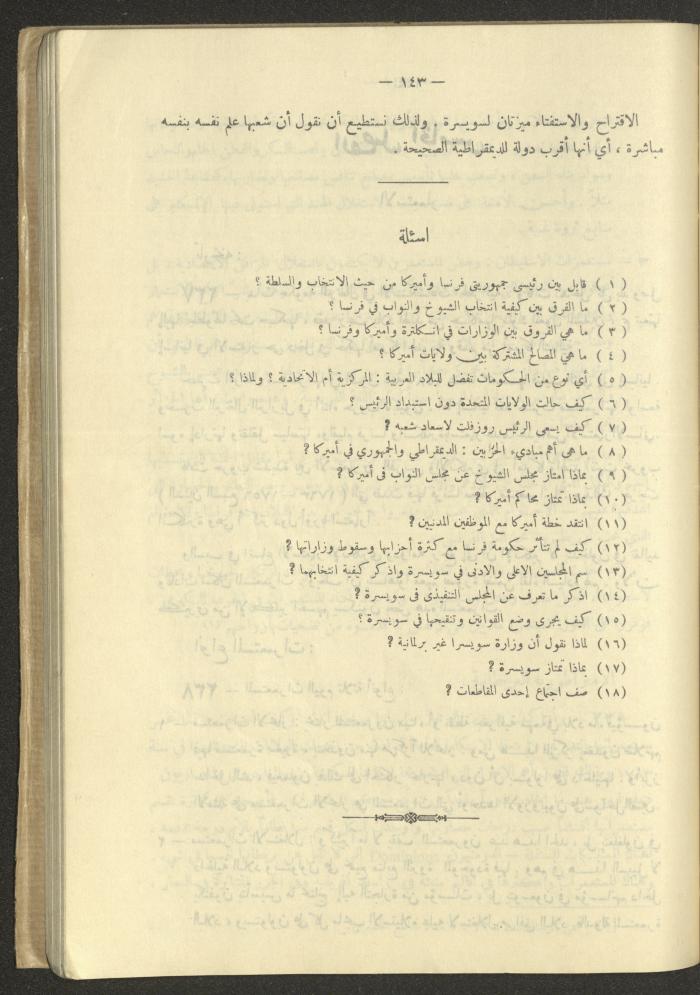 — ١٤٣ —
الاقتراح والاستفتاء ميزتان لسويسرة . ولذلك نستطيع أن نقول أن شعبها علم نفسه بنفسه
مباشرة ، أي أنها أقرب دولة للديمقراطية الصحيحة .
اسئلة
( ١ ) قابل بين رئيسي جمهوريتي فرنسا وأميركا من حيث الانتخاب والسلطة ؟
( ٢ ) ما الفرق بين كيفية انتخاب الشيوخ والنواب في فرنسا ؟
( ٣ ) ما هي الفروق بين الوزارات في انكلترة وأميركا وفرنسا ؟
( ٤ ) ما هي المصالح المشتركة بين ولايات أميركا ؟
( ٥ ) أي نوع من الحكومات تفضل للبلاد العربية : المركزية أم الاتحادية ؟ ولماذا ؟
( ٦ ) كيف حالت الولايات المتحدة دون استبداد الرئيس ؟
( ٧ ) كيف يسعى الرئيس روزفلت لاسعاد شعبه ؟
( ٨ ) ما هي أهم مباديء الحزبين : الديمقراطي والجمهوري في أميركا ؟
( ٩ ) بماذا امتاز مجلس الشيوخ عن مجلس النواب فى أميركا ؟
(١٠) بماذا تمتاز محاكم أميركا ؟
(١١) انتقد خطة أميركا مع الموظفين المدنيين ؟
(١٢) كيف لم تتأثر حكومة فرنسا مع كثرة أحزابها وسقوط وزاراتها ؟
(١٣) سم المجلسين الاعلى والادنى في سويسرة واذكر كيفية انتخابهما ؟
(١٤) اذكر ما تعرف عن المجلس التنفيذى فى سويسرة ؟
(١٥) كيف يجرى وضع القوانين وتنقيحها في سويسرة ؟
(١٦) لماذا نقول أن وزارة سويسرا غير برلمانية ؟
(١٧) بماذا تمتاز سويسرة ؟
(١٨) صف اجتماع إحدى المقاطعات ؟